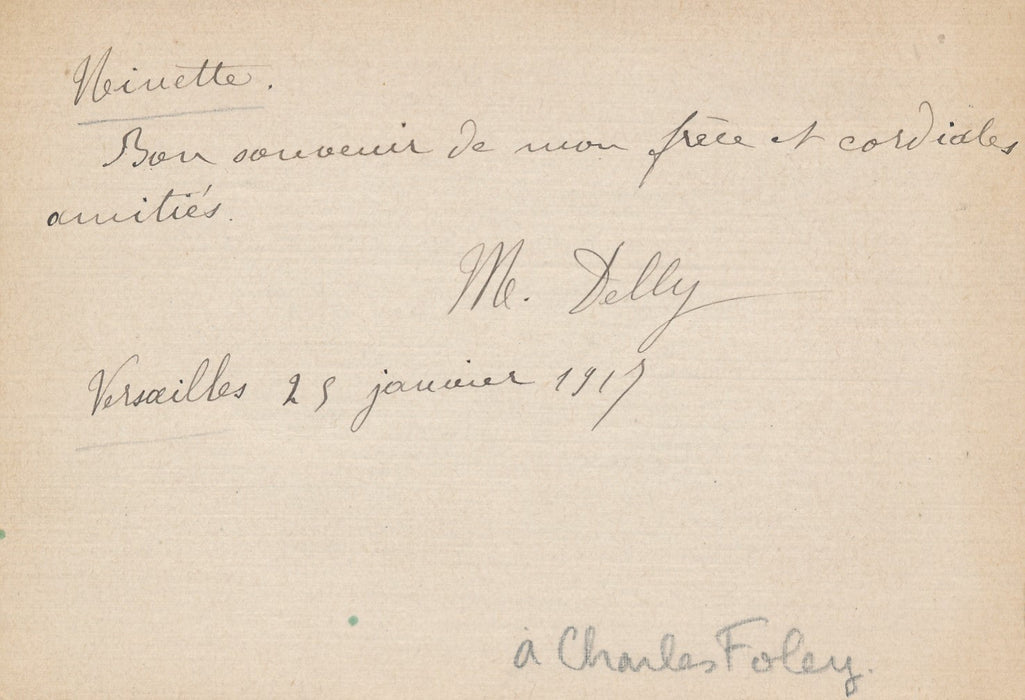 Ninette.
Bon souvenir de mon frère et cordiales
amitiés.
M. Delly
Versailles 25 janvier 1917
à Charles Foley.